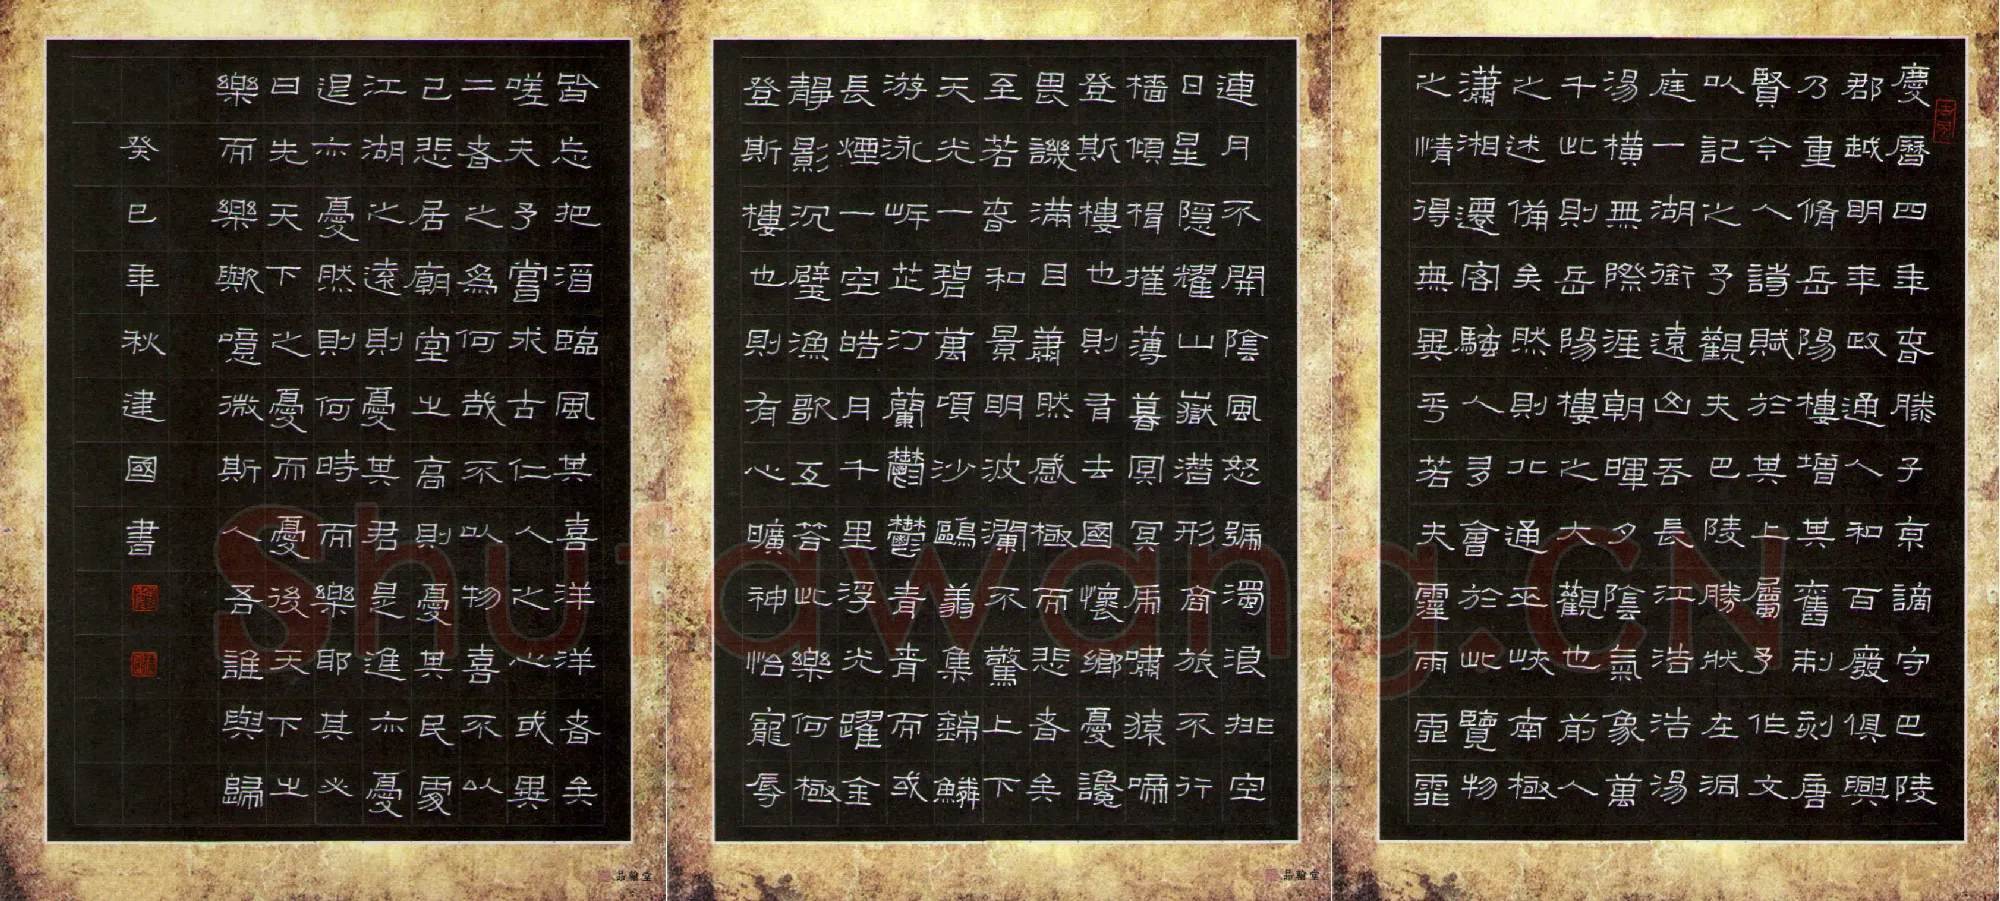 慶曆四年春滕子京謫守巴陵
郡越明年政通人和百廢俱興
乃重脩岳陽樓增其舊制刻唐
賢今人詩賦於其上屬予作文
以記之予觀夫巴陵勝狀在洞
庭一湖銜遠山吞長江浩浩湯
湯橫無際涯朝暉夕陰氣象萬
千此則岳陽樓之大觀也前人
之述備矣然則北通巫峽南極
瀟湘遷客騷人多會於此覽物
之情得無異乎若夫霪雨霏霏
連月不開陰風怒號濁浪排空
日星隱耀山嶽潛形商旅不行
檣傾楫摧薄暮冥冥虎嘯猿啼
登斯樓也則有去國懷鄉憂讒
畏譏滿目蕭然感極而悲者矣
至若春和景明波瀾不驚上下
天光一碧萬頃沙鷗翔集錦鱗
游泳岸芷汀蘭鬱鬱青青而或
長煙一空皓月千里浮光躍金
靜影沉璧漁歌互答此樂何極
登斯樓也則有心曠神怡寵辱
皆忘把酒臨風其喜洋洋者矣
嗟夫予嘗求古仁人之心或異
二者之為何哉不以物喜不以
己悲居廟堂之高則憂其民處
江湖之遠則憂其君是進亦憂
退亦憂然則何時而樂耶其必
曰先天下之憂而憂後天下之
樂而樂歟噫微斯人吾誰與歸
癸巳年秋建國書
品翰堂
品翰堂
Shufawang.CN